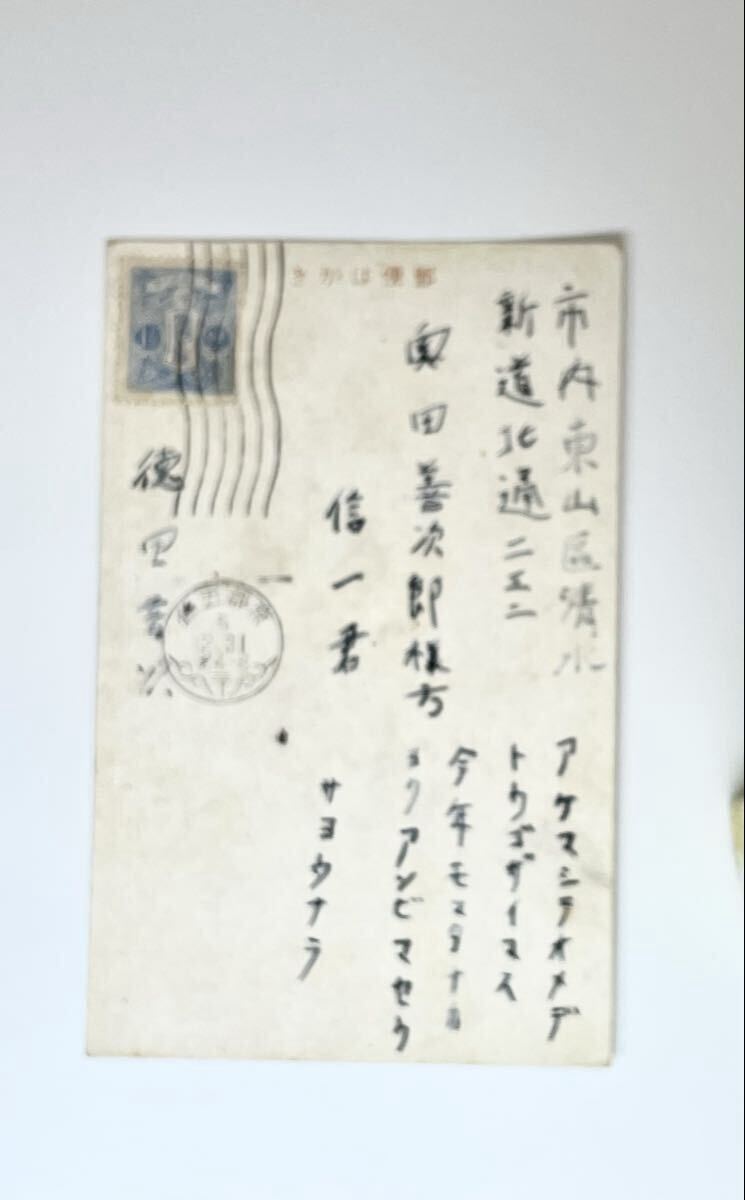 郵便はかき
市内東山區清水
新道北通二工二
奥田善次郎様方
信一君
アケマシテオメデ
トウゴザイマス
今年モマタナカ
ヨクアソビマセウ
サヨウナラ
徳田